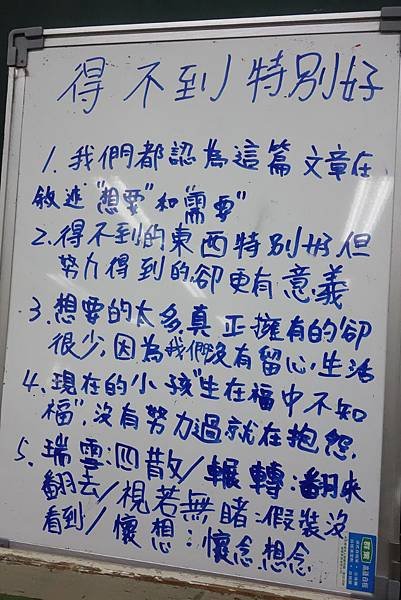 得不到特別好
1. 我們都認為這篇文章在
敘述"想要"和"需要"
2. 得不到的東西特別好,但
努力得到的卻更有意義
3. 想要的太多真正擁有的卻
很少,因為我們沒有留心生活
4. 現在的小孩"生在福中不知
福",沒有努力過就在抱怨.
5. 瑞雲:四散/輾轉:翻來
翻去/視若無睹:假裝沒
看到/懷想:懷念想念
群策